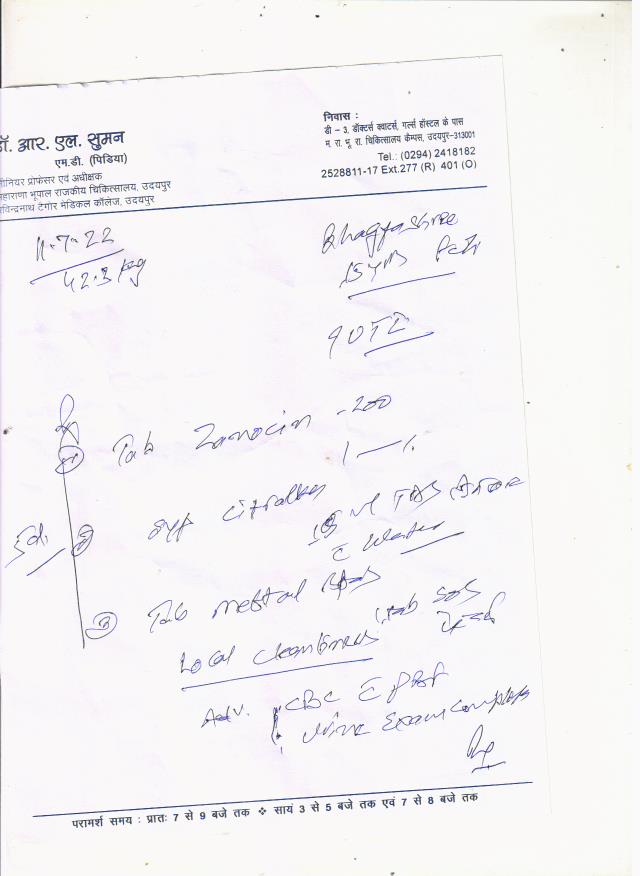 डॉ. आर. एल. सुमन
एम.डी. (पिडिया)
सीनियर प्रोफेसर एवं अधीक्षक
महाराणा भूपाल राजकीय चिकित्सालय, उदयपुर
रविन्द्रनाथ टैगोर मेडिकल कॉलेज, उदयपुर
निवास :
डी - 3, डॉक्टर्स क्वाटर्स, गर्ल्स हॉस्टल के पास
म. रा. भू. रा. चिकित्सालय कैम्पस, उदयपुर-313001
Tel.: (0294) 2418182
2528811-17 Ext.277 (R) 401 (O)
11-7-22
42.3 kg
Bhagyashree
Rx
Tab Zanocin -200
1 — 1
5d.
Syp Citralka
TDS
c Water
Tab Meftal Spas
1 tab SOS
Local Cleanliness
Adv. CBC c PBF
Urine Exam Complete
परामर्श समय : प्रातः 7 से 9 बजे तक ❖ सायं 3 से 5 बजे तक एवं 7 से 8 बजे तक